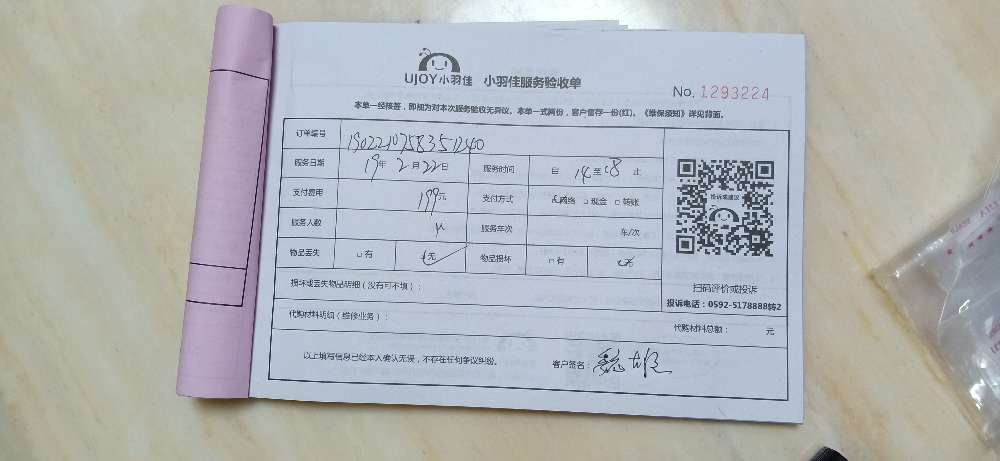 UJOY小羽佳 小羽佳服务验收单
No. 1293224
本单一经核签，即视为对本次服务验收无异议。本单一式两份，客户留存一份(红)。《维保须知》详见背面。
订单编号
服务日期 19年 2月22日 服务时间 自 14 至 18 止
支付费用 199元 支付方式 网络 □现金 □转账
服务人数 服务车次 车/次
物品丢失 □有 无 物品损坏 □有
投诉或建议
扫码评价或投诉
投诉电话：0592-5178888转2
损坏或丢失物品明细（没有可不填）：
代购材料明细（维修业务）： 代购材料总额： 元
以上填写信息已经本人确认无误，不存在任何争议纠纷。 客户签名：